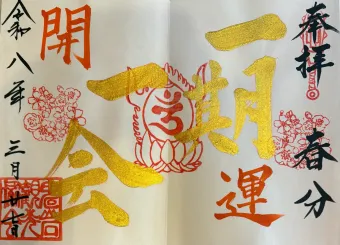 奉拝 春分
一期
一会
開運
令和八年三月廿日